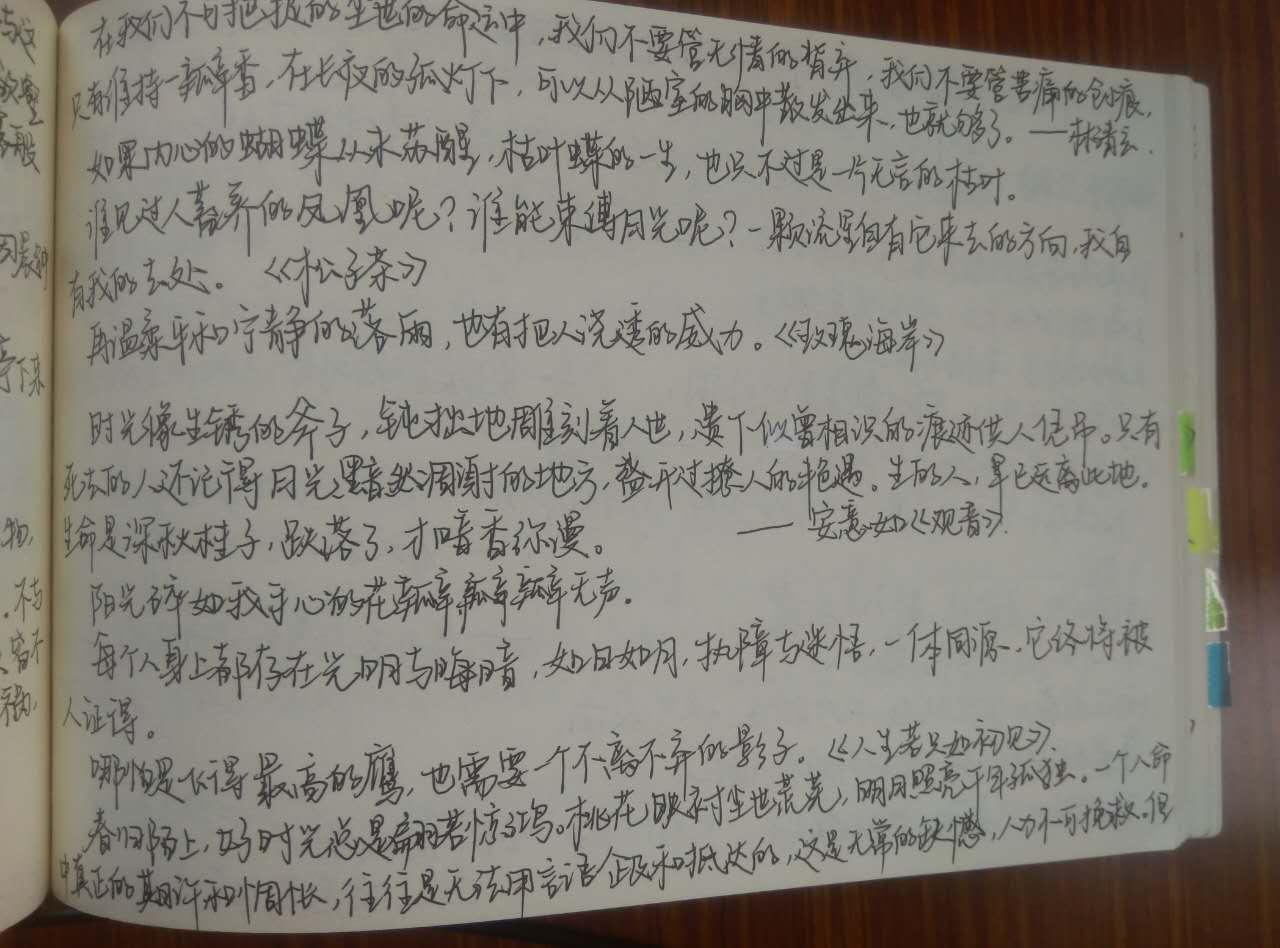 在我们不可把握的尘世的命运中，我们不要管无情的背弃，我们不要管苦痛的创痕，
只有维持一瓣香，在长夜的孤灯下，可以从陋室的胸中散发出来，也就够了。——林清玄.
如果内心的蝴蝶从未苏醒，枯叶蝶的一生，也只不过是一片无言的枯叶。
谁见过人蓄养的凤凰呢？谁能束缚月光呢？一颗流星自有它来去的方向，我自
有我的去处。《松子茶》
再温柔平和宁静的落雨，也有把人浇透的威力。《玫瑰海岸》
时光像生锈的斧子，钝拙地雕刻着人世，遗下似曾相识的痕迹供人凭吊。只有
死去的人还记得月光黯然凋谢的地方，盛开过撩人的艳遇。生的人，早已远离此地。
生命是深秋桂子，跌落了，才暗香弥漫。 —— 安意如《观音》.
阳光碎如我手心的花瓣，瓣瓣无声。
每个人身上都存在光明与晦暗，如日如月，执障与迷悟，一体同源，它终将被
人证得。
哪怕是飞得最高的鹰，也需要一个不离不弃的影子。《人生若只如初见》.
春归陌上，好时光总是翩若惊鸿。桃花映衬尘世荒芜，明月照亮千年孤独。一个人命
中真正的期许和惆怅，往往是无法用言语企及和抵达的，这是无常的缺憾，人力不可挽救。但
与
客般
因
下来
物，
。不与
客不